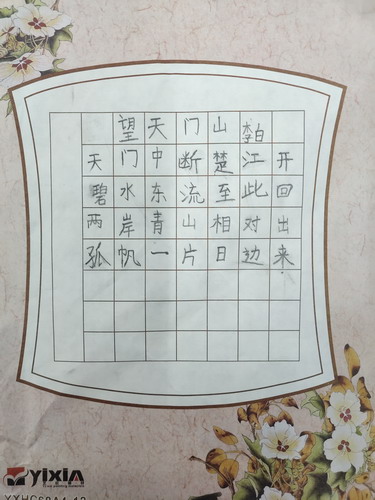 望天门山 李白
天门中断楚江开
碧水东流至此回
两岸青山相对出
孤帆一片日边来
YIXIN